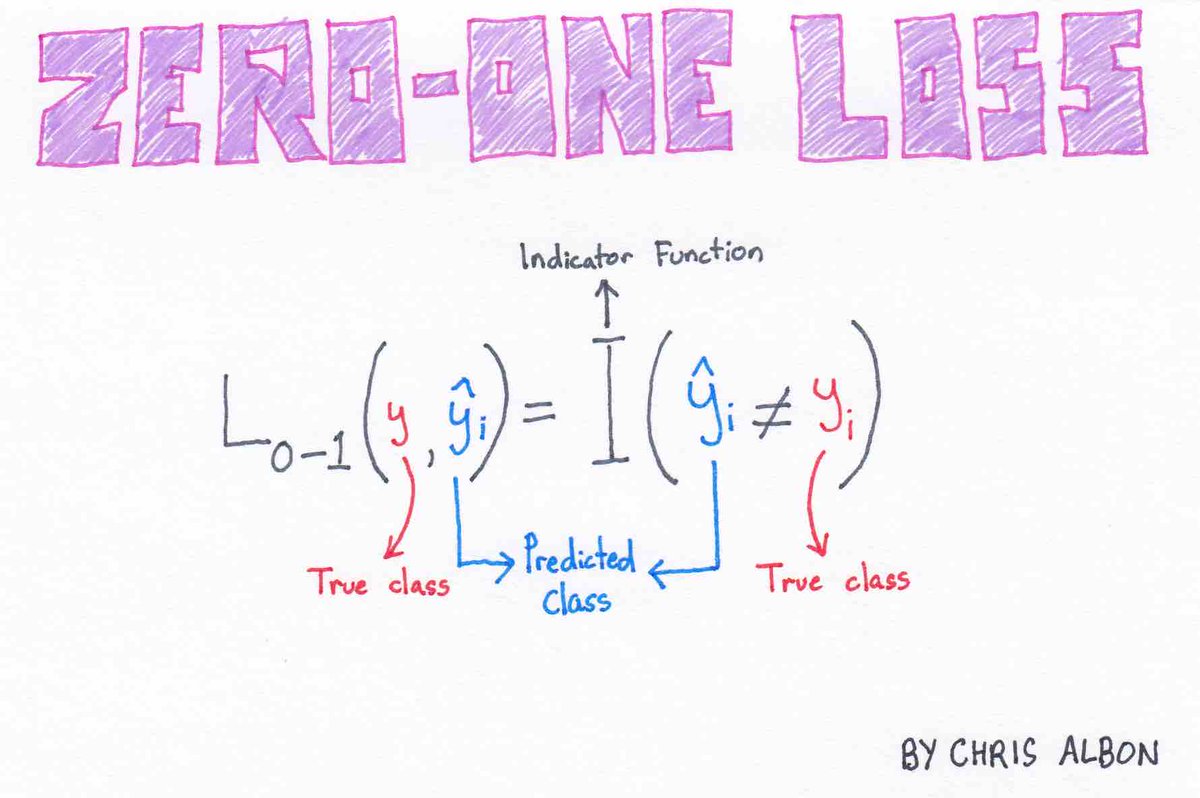 ZERO-ONE LOSS
Indicator Function
L₀₋₁(y, ŷᵢ) = I(ŷᵢ ≠ yᵢ)
True class
Predicted class
True class
BY CHRIS ALBON